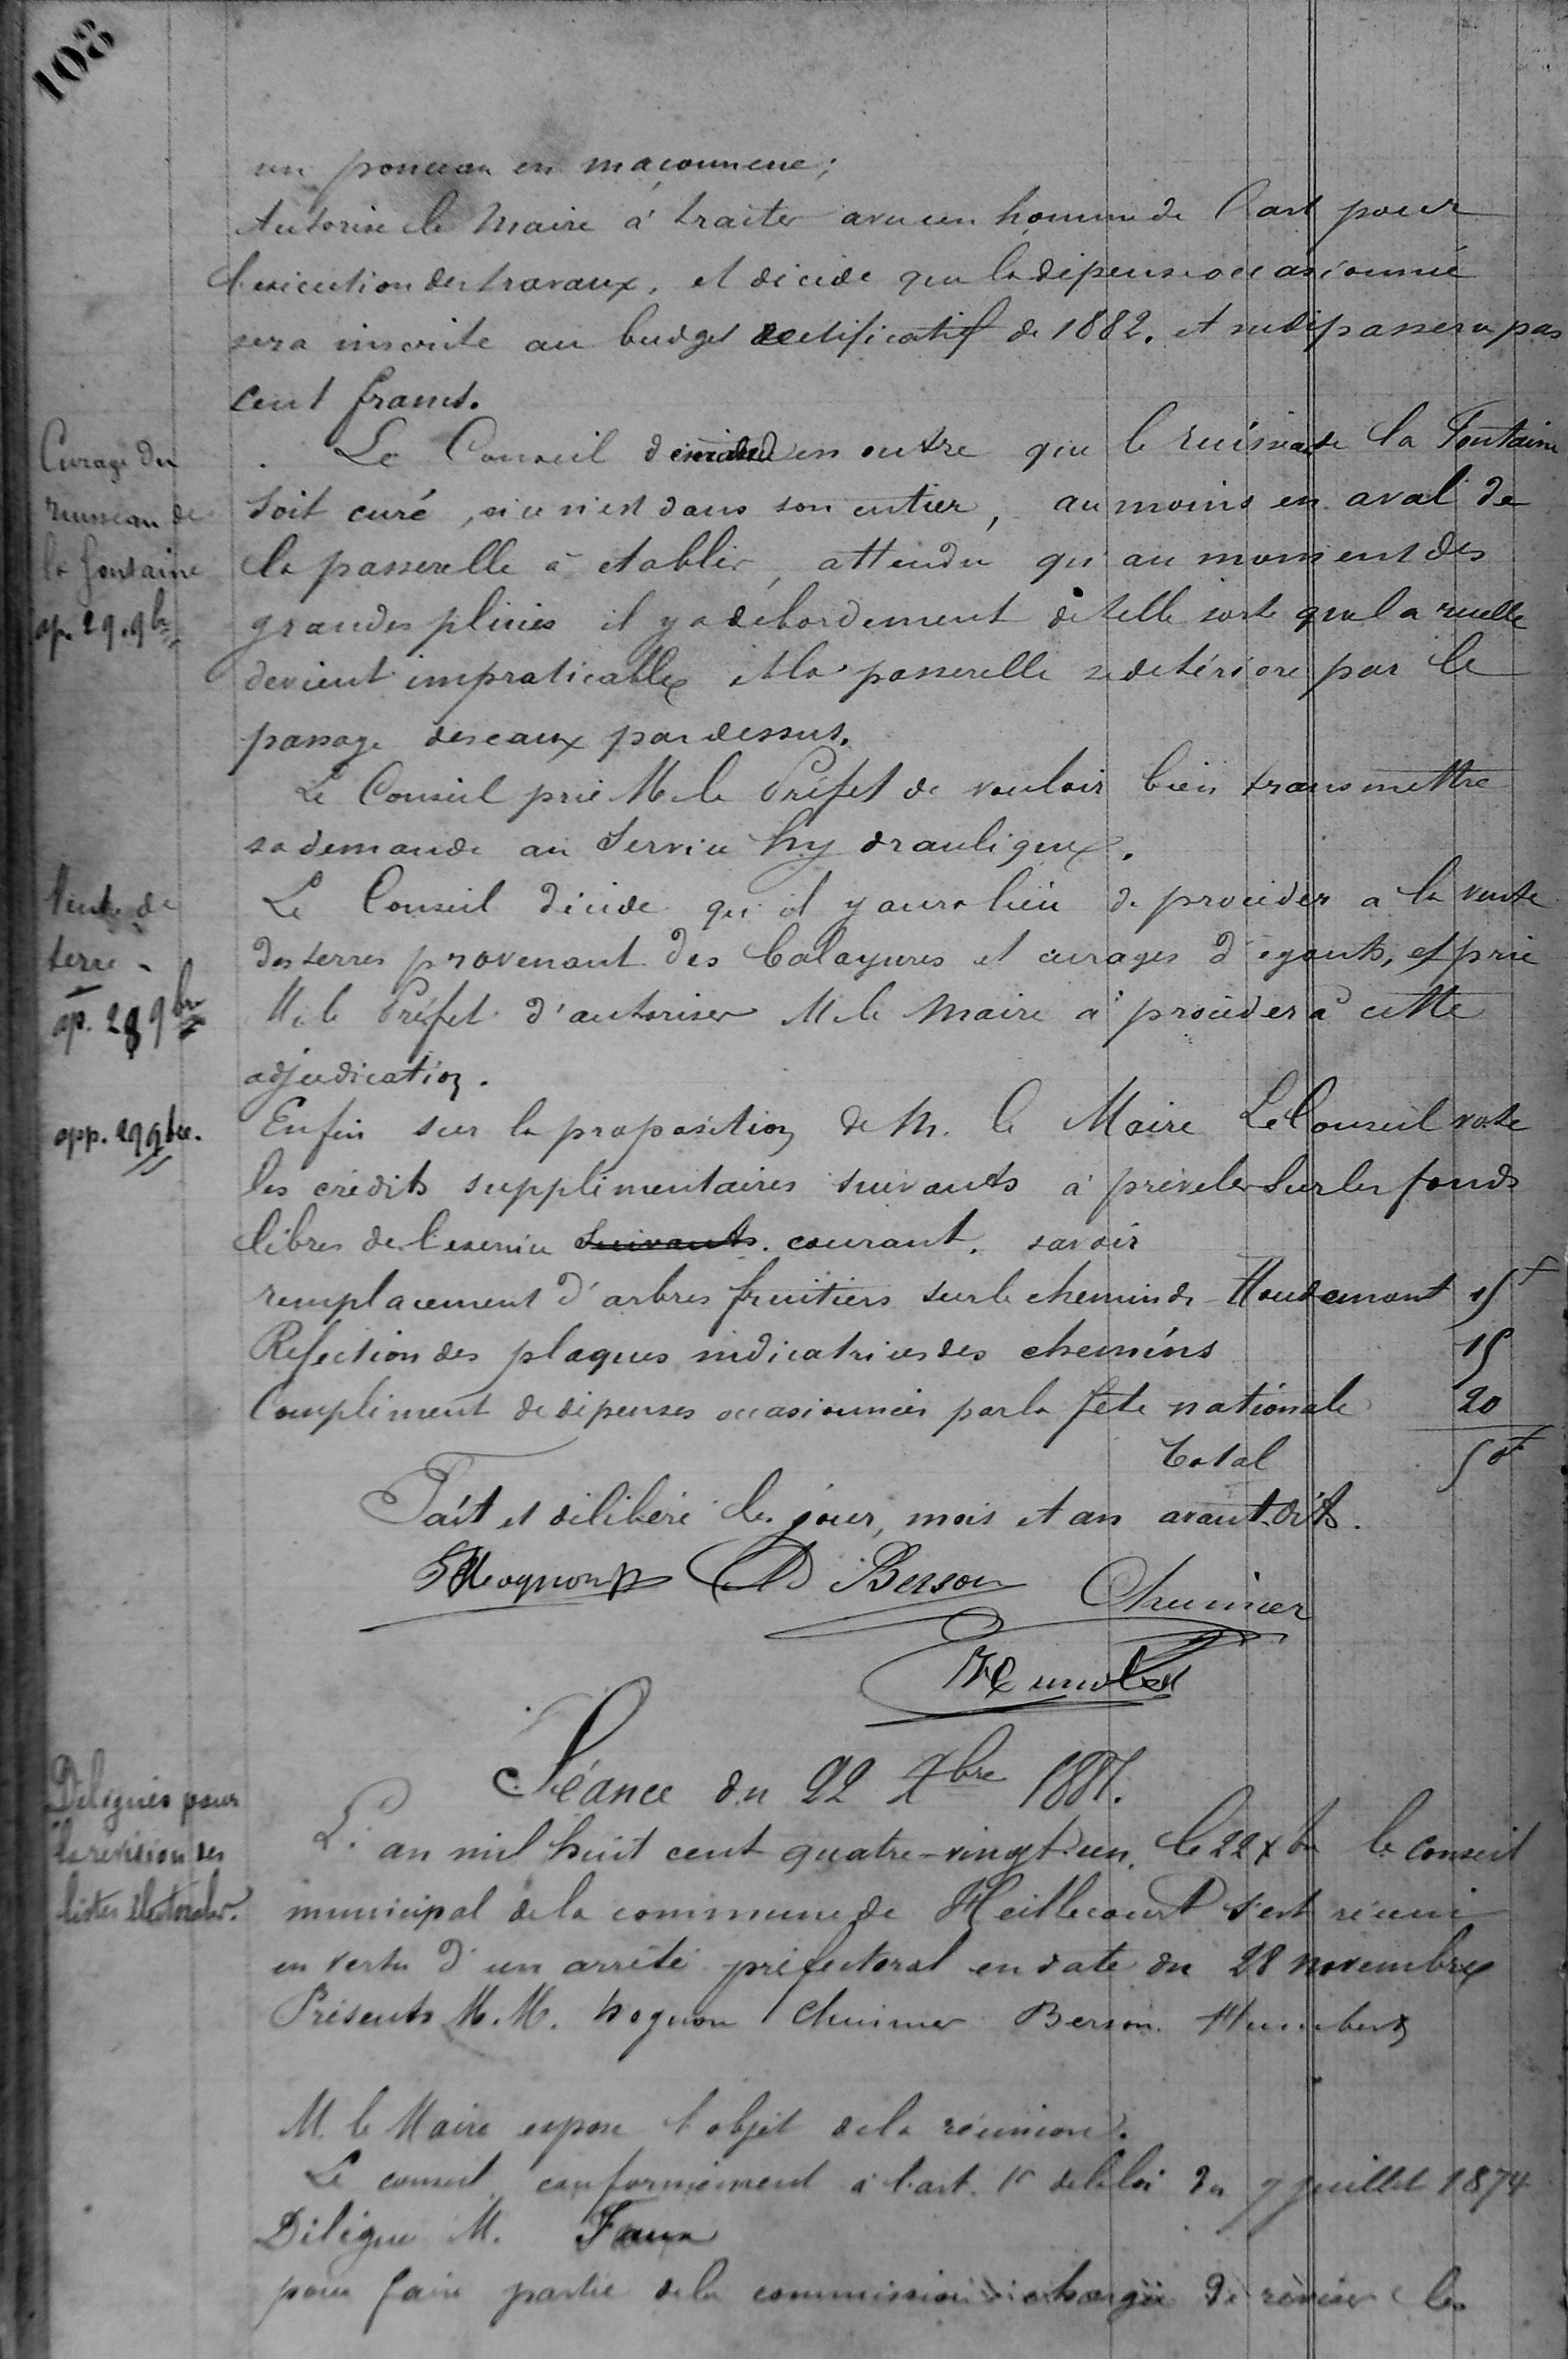 108
un ponceau en maçonnerie;
Autorise le Maire à traiter avec un homme de l'art pour
l'exécution des travaux, et décide que la dépense occasionnée
sera inscrite au budget rectificatif de 1882. et ne dépassera pas
cent francs.
Curage du
ruisseau de
la fontaine
ap. 29. 9bre
Le Conseil demande en outre que le ruisseau de la Fontaine
soit curé, si ce n'est dans son entier, au moins en aval de
la passerelle à établir, attendu qu'au moment des
grandes pluies il y a débordement de telle sorte que la ruelle
devient impraticable et la passerelle se détériore par le
passage des eaux par dessus.
Le Conseil prie M. le Préfet de vouloir bien transmettre
sa demande au Service hydraulique.
Vente de
terre.
ap. 28 9bre
Le Conseil décide qu'il y aura lieu de procéder a la vente
des terres provenant des balayures et curages d'égouts, et prie
M. le Préfet d'autoriser M. le Maire à procéder à cette
adjudication.
app. 29 9bre.
Enfin sur la proposition de M. le Maire Le Conseil vote
les crédits supplémentaires suivants à préveler sur les fonds
libres de l'exercice suivants. courant. savoir
remplacement d'arbres fruitiers sur le chemin de Houdemont 15f
Réfection des plaques indicatrices des chemins 15
Complément de dépenses occasionnées par la fête nationale 20
Total 50f
Fait et délibéré les jour, mois et an avant dits.
Hognon D Berson Chuinier
Humbert
Séance du 22 Xbre 1881.
Délégués pour
la révision des
listes électorales.
L'an mil huit cent quatre-vingt un, le 22 Xbre le conseil
municipal de la commune de Heillecourt s'est réuni
en vertu d'un arrêté préfectoral en date du 28 novembre
Présents M. M. hognon Chuinier Berson Humbert
M. le Maire expose l'objet de la réunion.
Le conseil conformément à l'art. 1r de la loi du 7 juillet 1874
Délègue M. Faux
pour faire partie de la commission chargée de réviser les